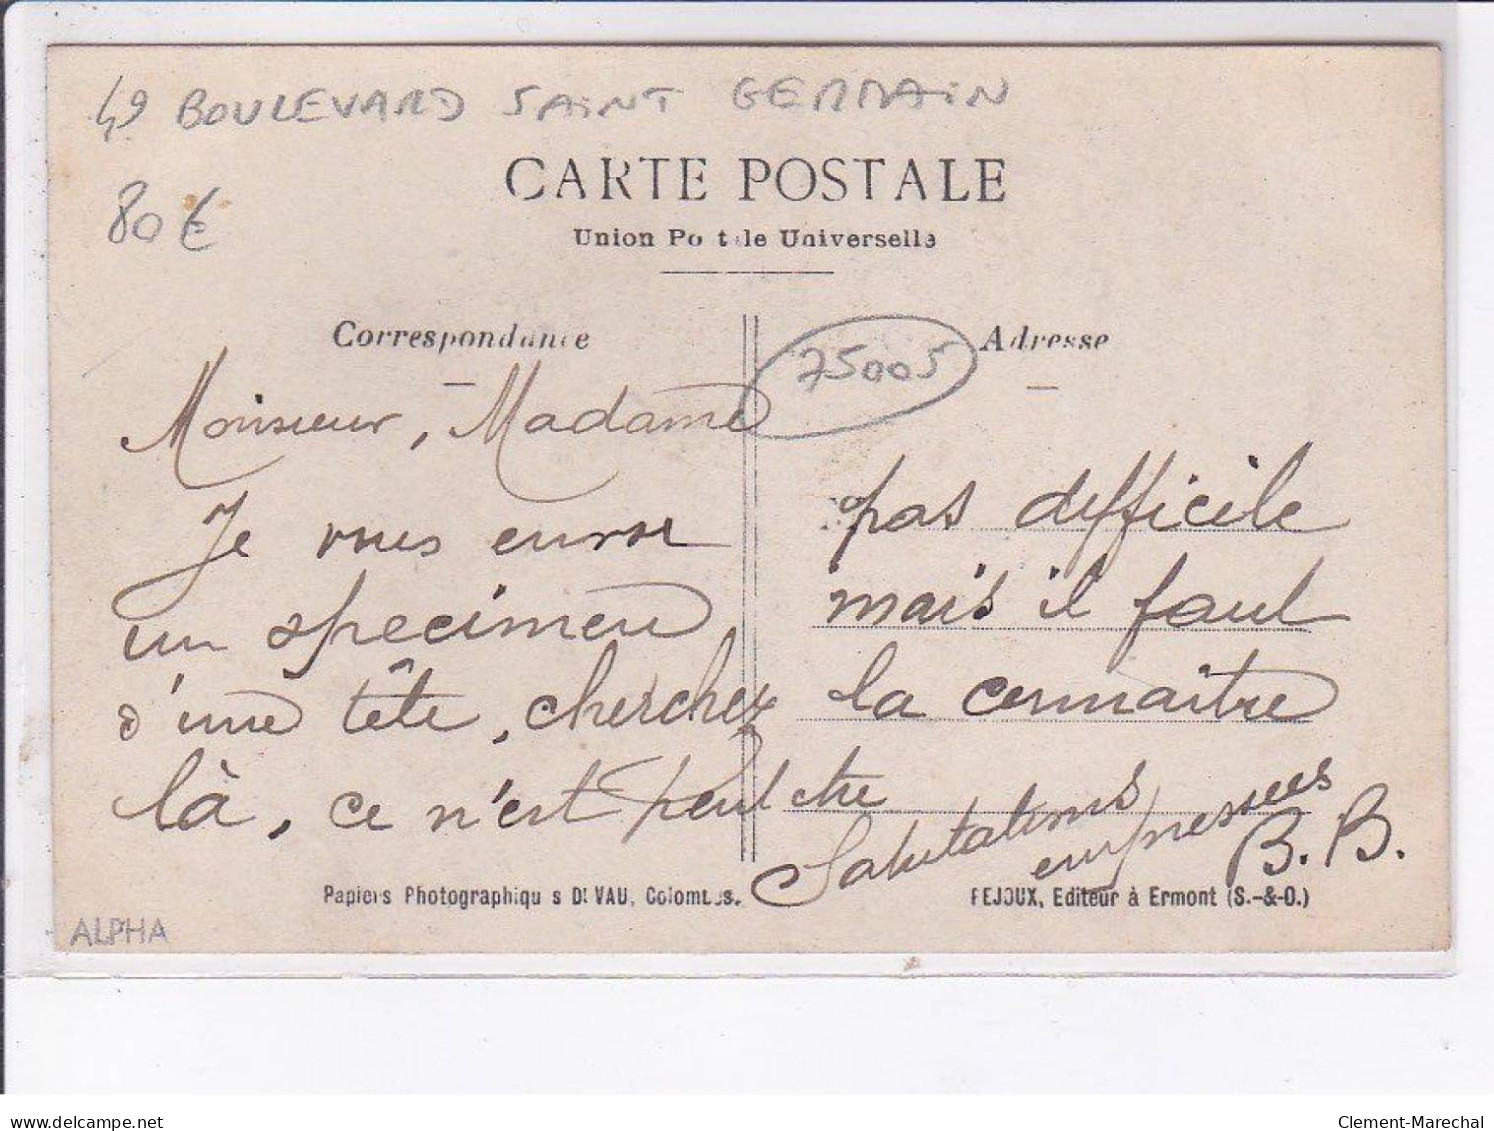 49 BOULEVARD SAINT GERMAIN
80 €
CARTE POSTALE
Union Postale Universelle
Correspondance
75005
Adresse
Monsieur, Madame
Je vous envoie
un specimen
d'une tête, cherchez
là, ce n'est peut être
pas difficile
mais il faut
la connaître
Salutations
empressées
B. B.
Papiers Photographiques DEVAU, Colombes.
FEJOUX, Editeur à Ermont (S.-&-O.)
ALPHA
delcampe.net
Clement-Marechal